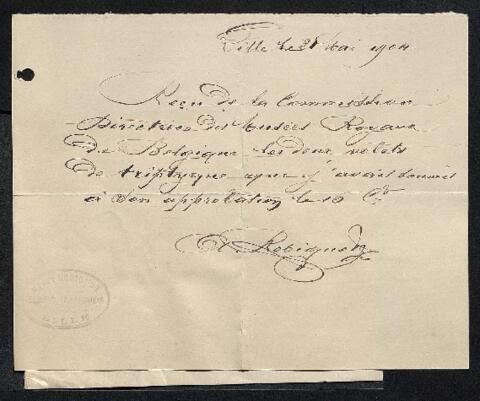 Lille le 31 Mai 1904
Reçu de la Commission
Directrice des Musées Royaux
de Belgique les deux volets
de triptyque que j'avais soumis
à son approbation le 10 Ct
LILLE